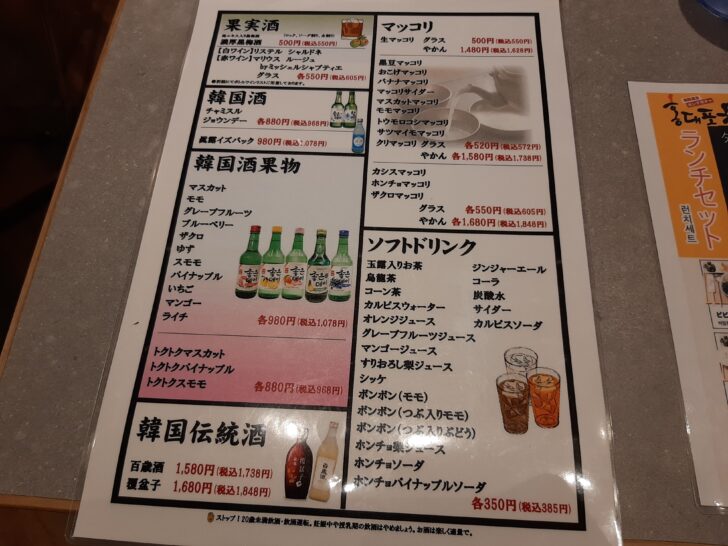 果実酒
濃厚黒梅酒 500円(税込550円)
【白ワイン】リステル シャルドネ
【赤ワイン】マリウス ルージュ
byミッシェルシャプティエ
グラス 各550円(税込605円)
韓国酒
チャミスル
ジョウンデー 各880円(税込968円)
イズバック 980円(税込1,078円)
韓国酒果物
マスカット
モモ
グレープフルーツ
ブルーベリー
ザクロ
ゆず
スモモ
パイナップル
いちご
マンゴー
ライチ 各980円(税込1,078円)
トクトクマスカット
トクトクパイナップル
トクトクスモモ 各880円(税込968円)
韓国伝統酒
百歳酒 1,580円(税込1,738円)
覆盆子 1,680円(税込1,848円)
マッコリ
生マッコリ グラス 500円(税込550円)
やかん 1,480円(税込1,628円)
黒豆マッコリ
おこげマッコリ
バナナマッコリ
マッコリサイダー
マスカットマッコリ
モモマッコリ
トウモロコシマッコリ
サツマイモマッコリ
クリマッコリ グラス 各520円(税込572円)
やかん 各1,580円(税込1,738円)
カシスマッコリ
ホンチョマッコリ
ザクロマッコリ
グラス 各550円(税込605円)
やかん 各1,680円(税込1,848円)
ソフトドリンク
玉露入りお茶
烏龍茶
コーン茶
カルピスウォーター
オレンジジュース
グレープフルーツジュース
マンゴージュース
すりおろし梨ジュース
シッケ
ポンポン(モモ)
ポンポン(つぶ入りモモ)
ポンポン(つぶ入りぶどう)
ホンチョ梨ジュース
ホンチョソーダ
ホンチョパイナップルソーダ
ジンジャーエール
コーラ
炭酸水
サイダー
カルピスソーダ
各350円(税込385円)
ストップ!20歳未満飲酒・飲酒運転。妊娠中や授乳期の飲酒はやめましょう。お酒は楽しく適量で。
홍대포
ランチセット
런치세트